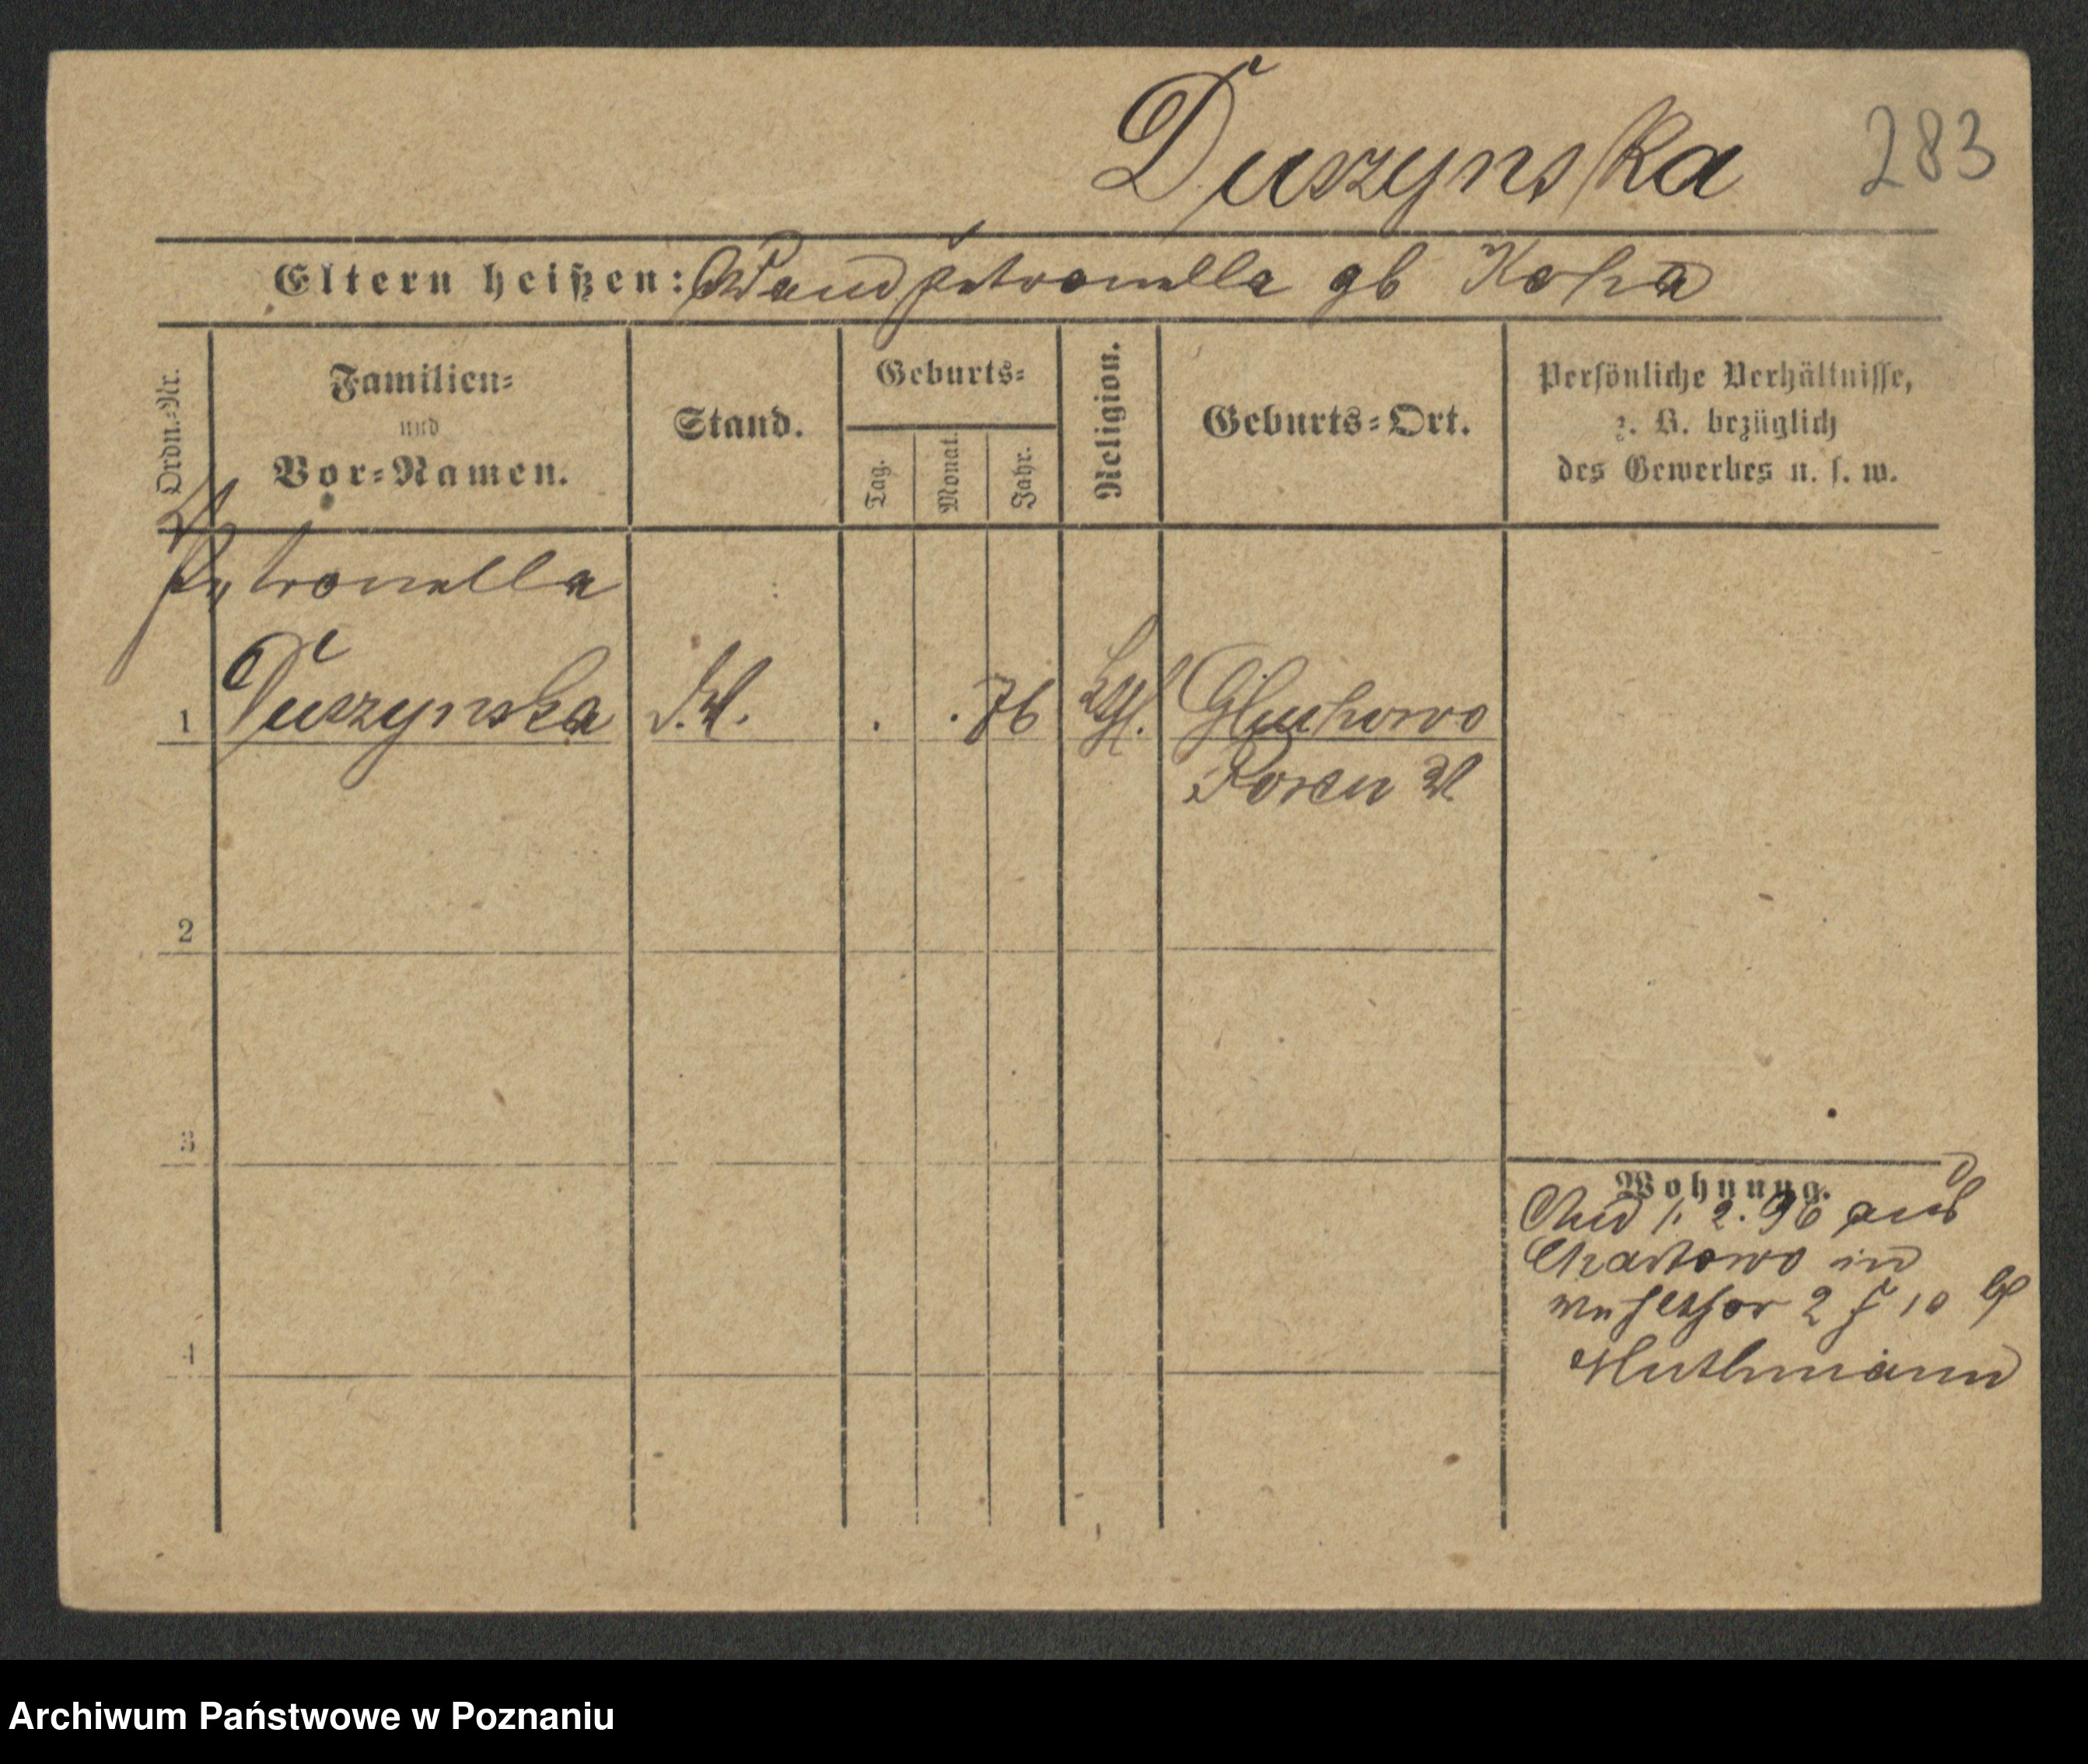 Duszynska 283
Eltern heißen: Petronella gb
Ordn.-Nr.
Familien-
und
Vor-Namen.
Stand.
Geburts-
Tag.
Monat.
Jahr.
Religion.
Geburts-Ort.
Persönliche Verhältnisse,
z. B. bezüglich
des Gewerbes u. s. w.
Petronella
1 Duszynska . . 76 Gluchowo
Posen W
2
3
Wohnung.
1. 2. 96 aus
Chartowo in
2 10
Muthmann
4
Archiwum Państwowe w Poznaniu